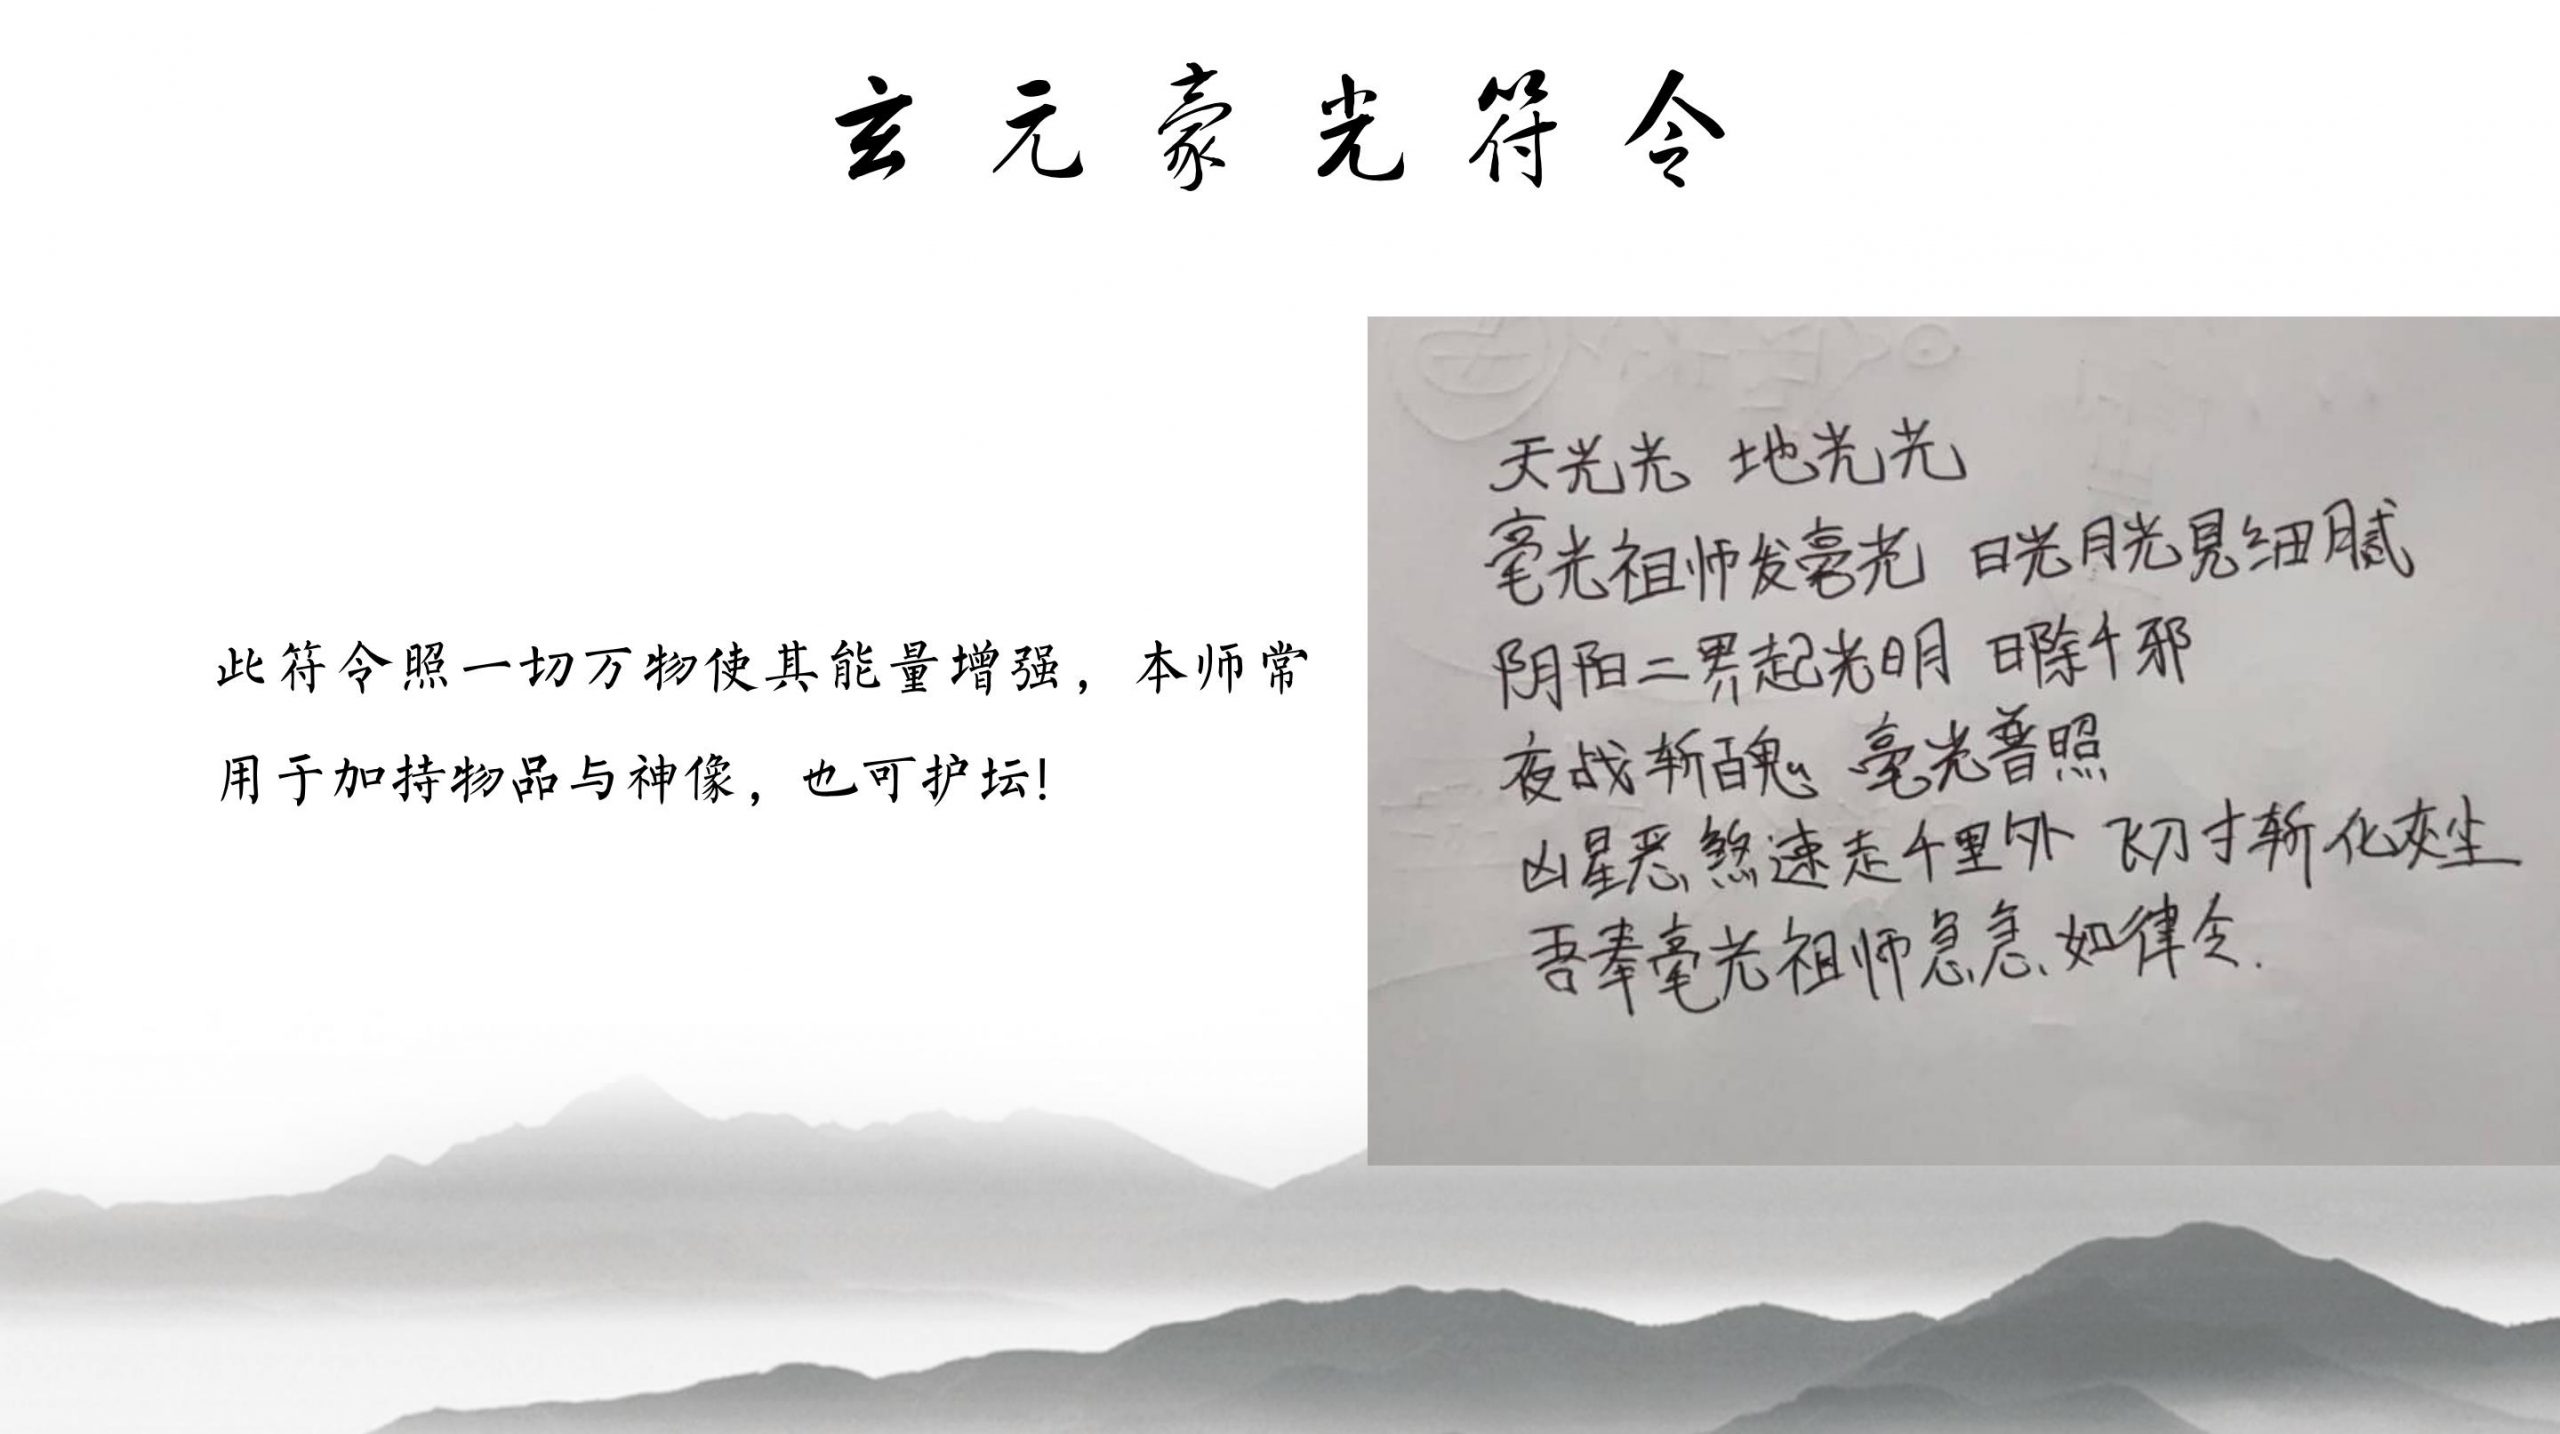 玄元豪光符令
此符令照一切万物使其能量增强，本师常
用于加持物品与神像，也可护坛！
天光光 地光光
毫光祖师发毫光 日光月光見细腻
阴阳二界起光明 日除千邪
夜战斩百鬼 毫光普照
凶星恶煞速走千里外 飞刀寸斩化灰尘
吾奉毫光祖师急急如律令.